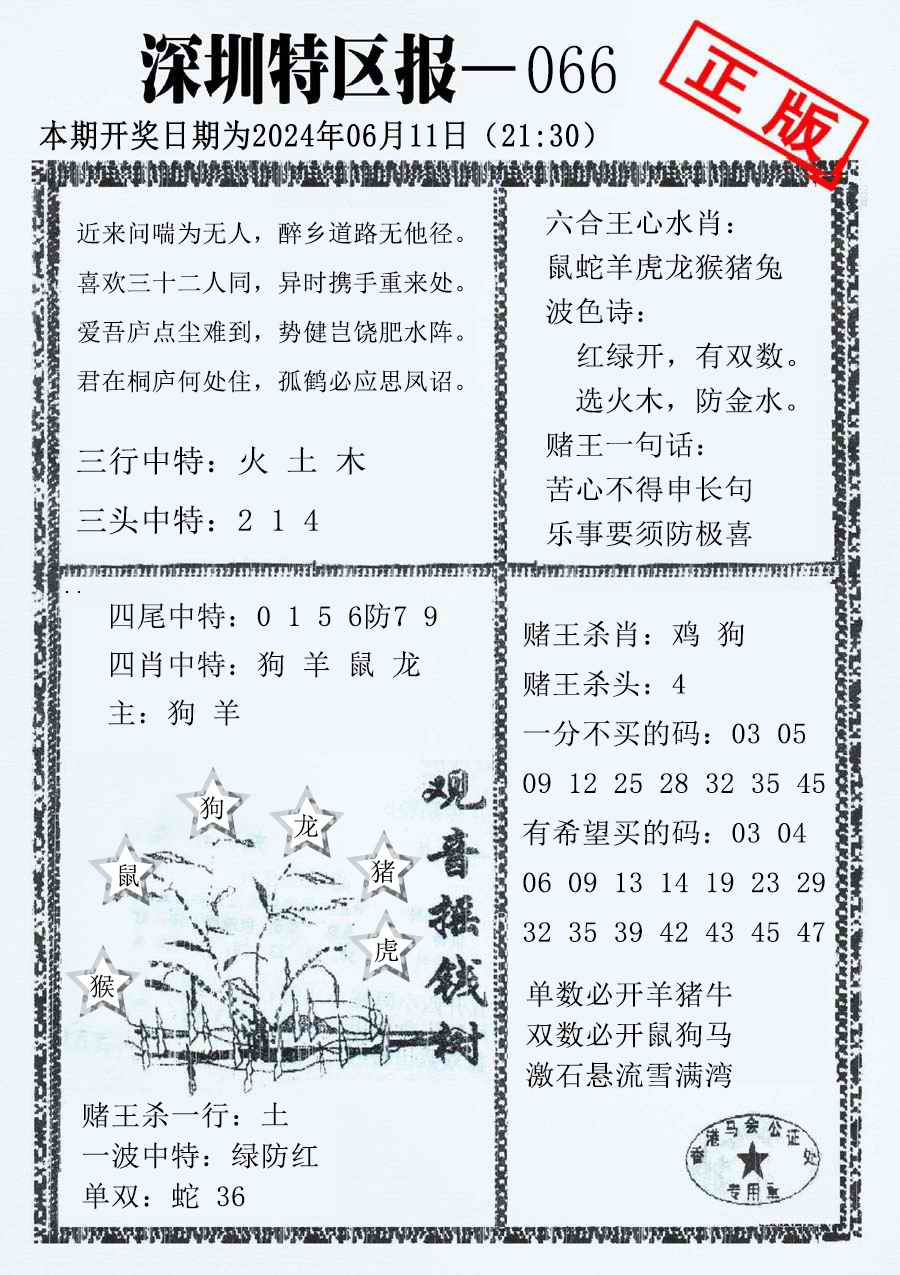 深圳特区报—066
正版
本期开奖日期为2024年06月11日（21:30）
近来问喘为无人，醉乡道路无他径。
喜欢三十二人同，异时携手重来处。
爱吾庐点尘难到，势健岂饶肥水阵。
君在桐庐何处住，孤鹤必应思凤诏。
三行中特：火 土 木
三头中特：2 1 4
六合王心水肖：
鼠蛇羊虎龙猴猪兔
波色诗：
红绿开，有双数。
选火木，防金水。
赌王一句话：
苦心不得申长句
乐事要须防极喜
..
四尾中特：0 1 5 6防7 9
四肖中特：狗 羊 鼠 龙
主：狗 羊
狗
龙
鼠
猪
虎
猴
观音摇钱树
赌王杀一行：土
一波中特：绿防红
单双：蛇 36
赌王杀肖：鸡 狗
赌王杀头：4
一分不买的码：03 05
09 12 25 28 32 35 45
有希望买的码：03 04
06 09 13 14 19 23 29
32 35 39 42 43 45 47
单数必开羊猪牛
双数必开鼠狗马
激石悬流雪满湾
香港马会公证处
专用章